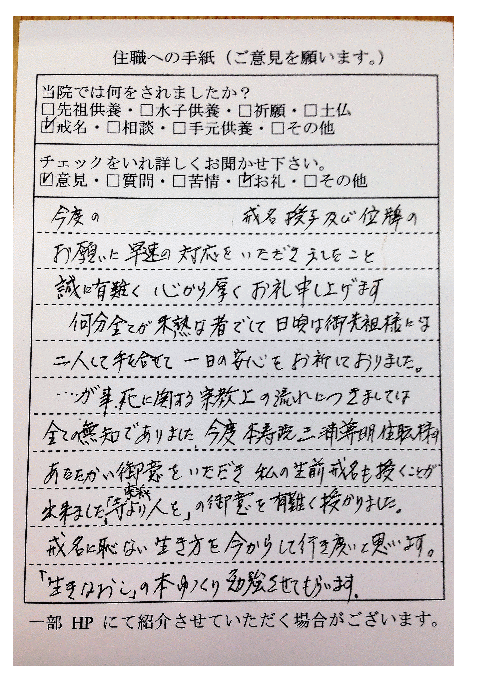 住職への手紙（ご意見を願います。）
当院では何をされましたか？
□先祖供養・□水子供養・□祈願・□土仏
☑戒名・□相談・□手元供養・□その他
チェックをいれ詳しくお聞かせ下さい。
☑意見・□質問・□苦情・☑お礼・□その他
今度の 戒名授与及び位牌の
お願いに早速の対応をいただきましたこと
誠に有難く心から厚くお礼申し上げます
何分全てが未熟な者でして日頃は御先祖様には
二人して手を合せて一日の安心をお祈しておりました。
が事、死に関する宗教上の流れにつきましては
全ての無知でありました。今度本寿院三浦尊明住職様の
あたたかい御意をいただき私の生前戒名も授くことが
出来ました「寺より人を」の御意を有難く授かりました。
戒名に恥ない生き方を今からして行き度いと思います。
「生きなおし」の本ゆっくり勉強させてもらいます。
一部 HP にて紹介させていただく場合がございます。